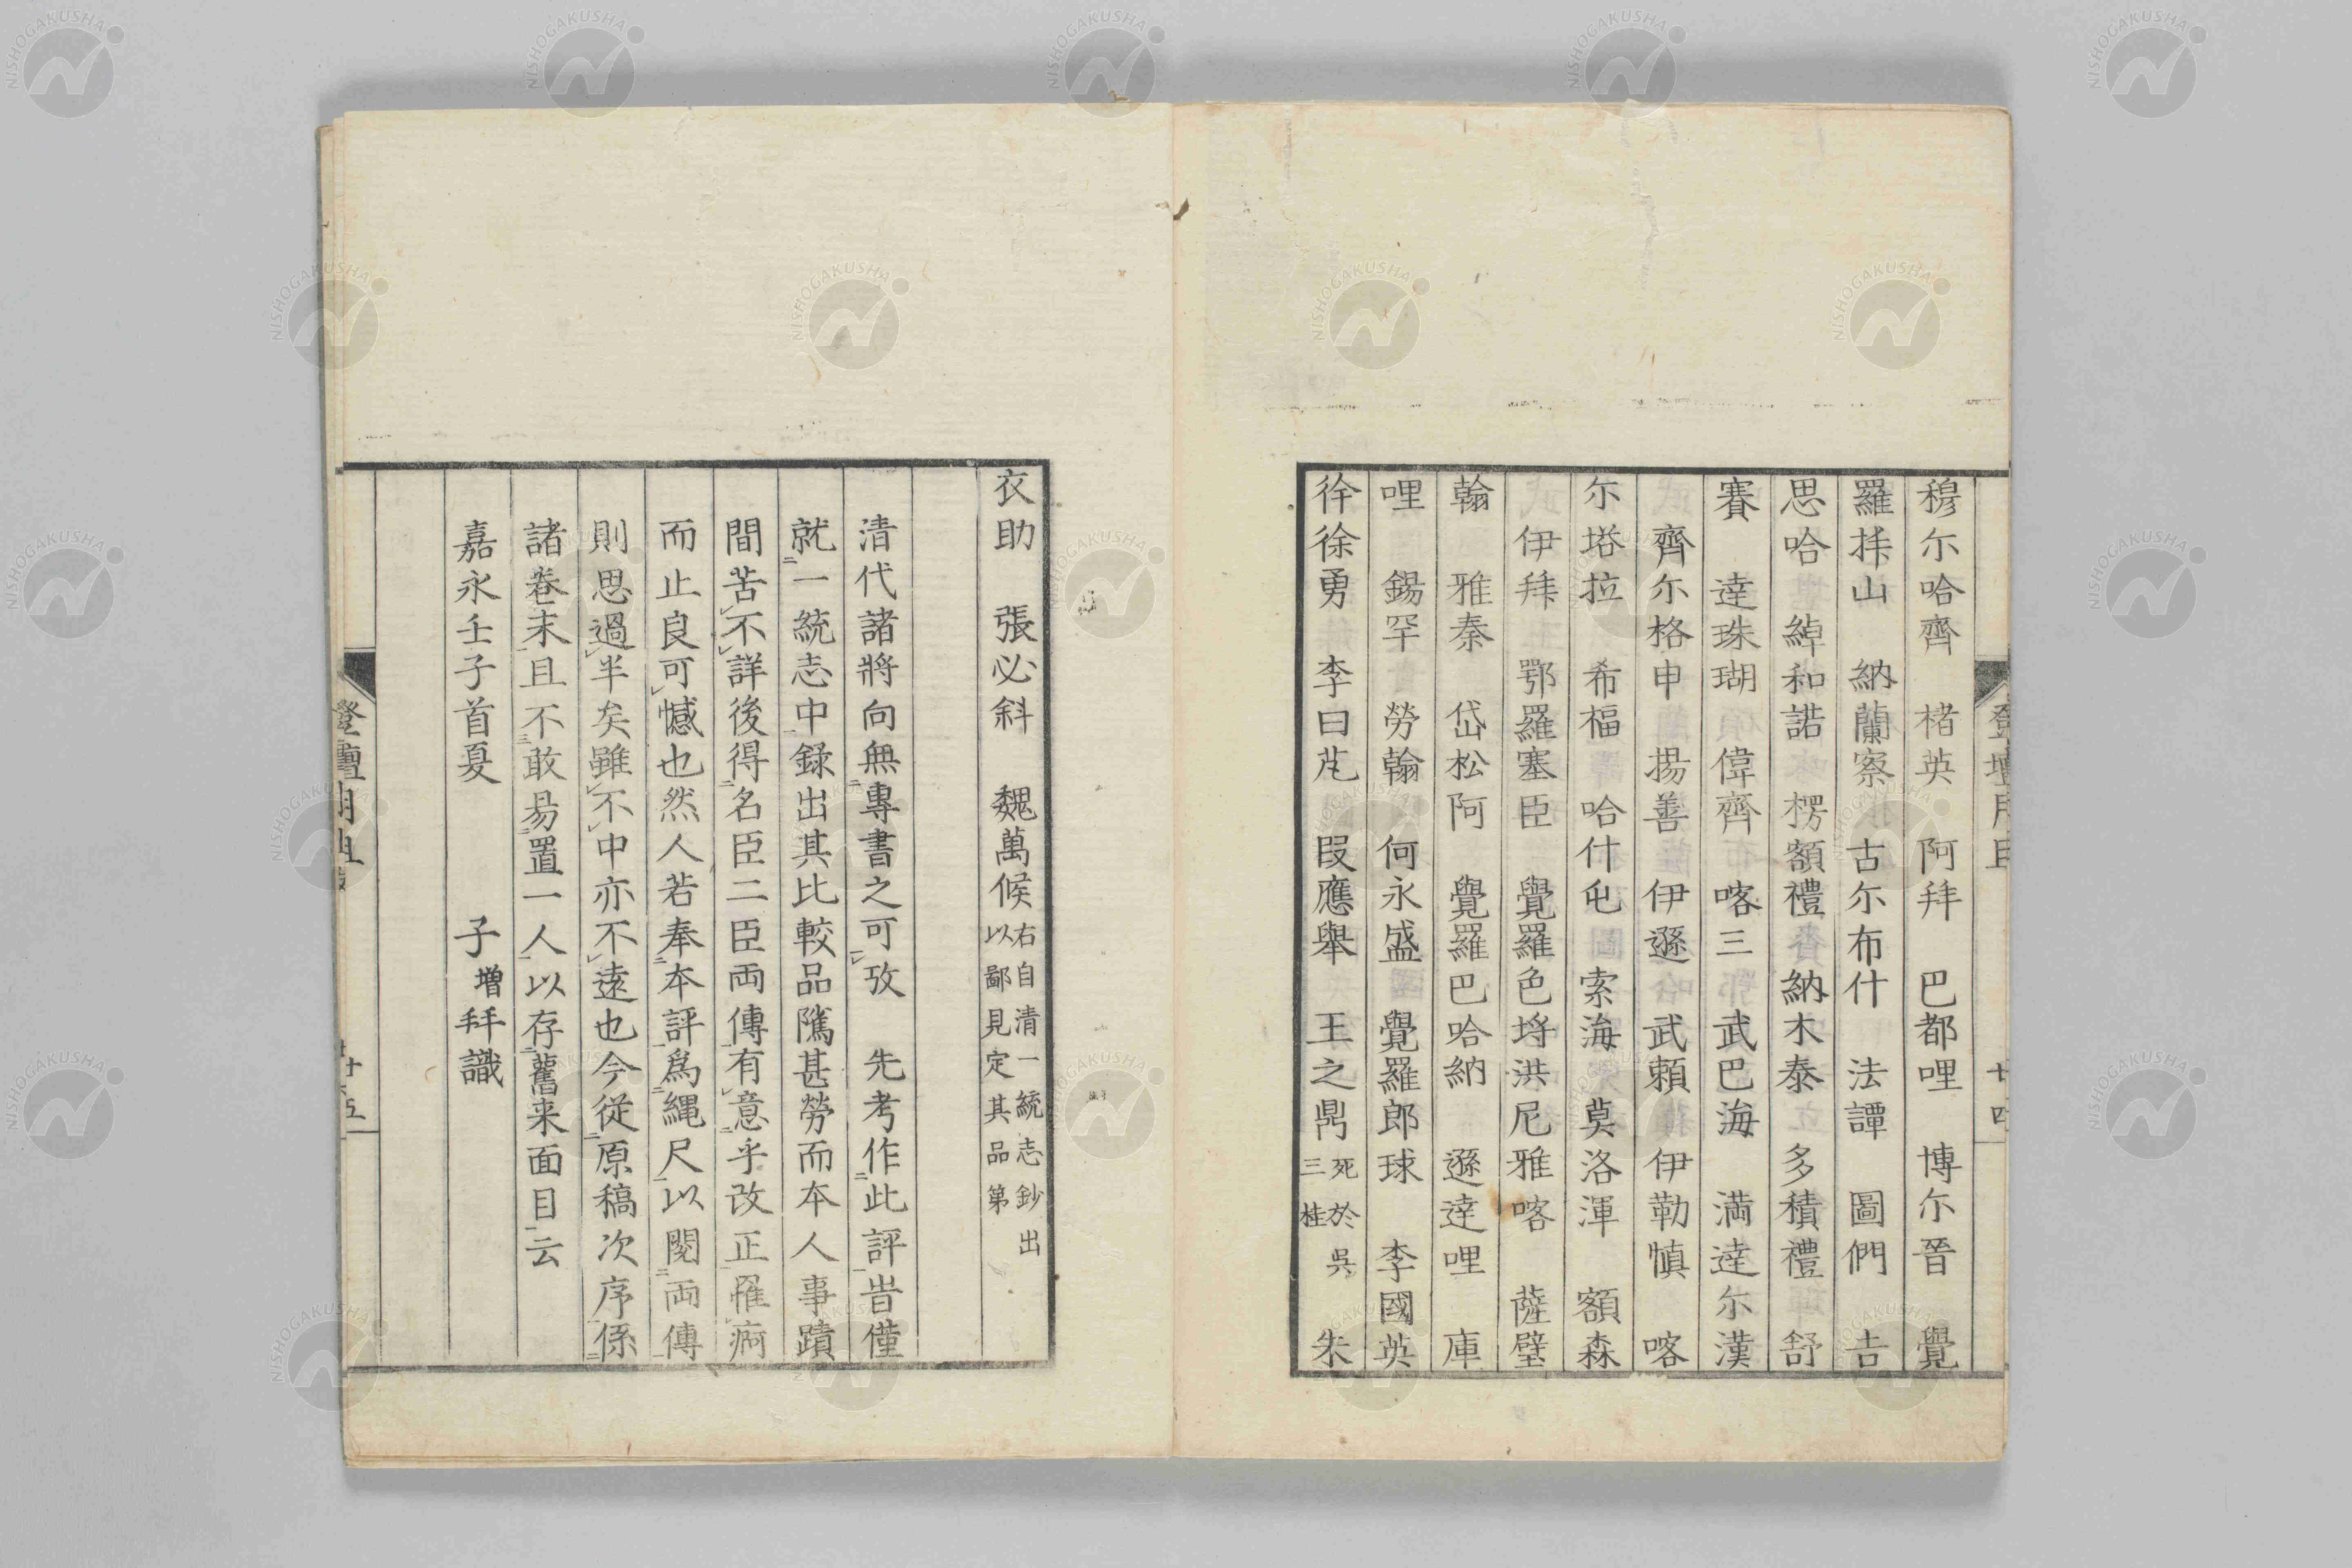 穆尔哈齊　楮英　阿拜　巴都哩　博尔晉　覺
羅拜山　納蘭察　古尔布什　法譚　圖們　吉
思哈　綽和諾　楞額禮　納木泰　多積禮　舒
賽　達珠瑚　偉齊　喀三　武巴海　満達尔漢
齊尔格申　揚善　伊遜　武頼　伊勒慎　喀
尔塔拉　希福　哈什屯　索海　莫洛渾　額森
伊拜　鄂羅塞臣　覺羅色埓洪　尼雅喀　薩璧
翰　雅秦　岱松阿　覺羅巴哈納　遜達哩　庫
哩　錫罕　勞翰　何永盛　覺羅郎球　李國英
徐勇　李曰芃　叚應舉　王之鼎死於吳三桂　朱
衣助　張必斜　魏萬候右自清一統志鈔出以鄙見定其品第
清代諸將向無專書之可攷　先考作此評皆僅
就一統志中錄出其比較品隲甚勞而本人事蹟
間苦不詳後得名臣二臣兩傳有意乎改正罹病
而止良可憾也然人若奉本評爲繩尺以閱兩傳
則思過半矣雖不中亦不遠也今從原稿次序係
諸卷末且不敢易置一人以存舊来面目云
嘉永壬子首夏　子增拜識